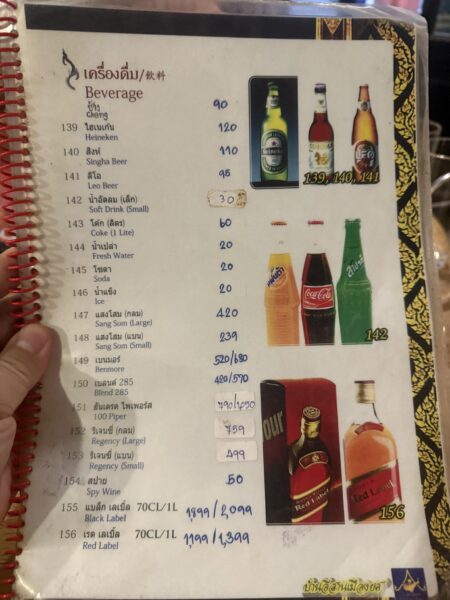 เครื่องดื่ม/飲料
Beverage
ช้าง 90
Chang
139 ไฮเนเก้น 120
Heineken
140 สิงห์ 110
Singha Beer
141 ลีโอ 95
Leo Beer
142 น้ำอัดลม (เล็ก) 30
Soft Drink (Small)
143 โค้ก (ลิตร) 60
Coke (1 Lite)
144 น้ำเปล่า 20
Fresh Water
145 โซดา 20
Soda
146 น้ำแข็ง 20
Ice
147 แสงโสม (กลม) 420
Sang Som (Large)
148 แสงโสม (แบน) 239
Sang Som (Small)
149 เบนมอร์ 520/680
Benmore
150 เบลนด์ 285 420/570
Blend 285
151 ฮันเดรด ไพเพอร์ส 790/1,050
100 Piper
152 รีเจนซี่ (กลม) 759
Regency (Large)
153 รีเจนซี่ (แบน) 499
Regency (Small)
154 สปาย 50
Spy Wine
155 แบล็ก เลเบิ้ล 70CL/1L 1,899/2,099
Black Label
156 เรด เลเบิ้ล 70CL/1L 1,199/1,399
Red Label
139, 140, 141
Coca-Cola
142
Red Label
Red Label
156
บ้านอีสานเมืองยศ